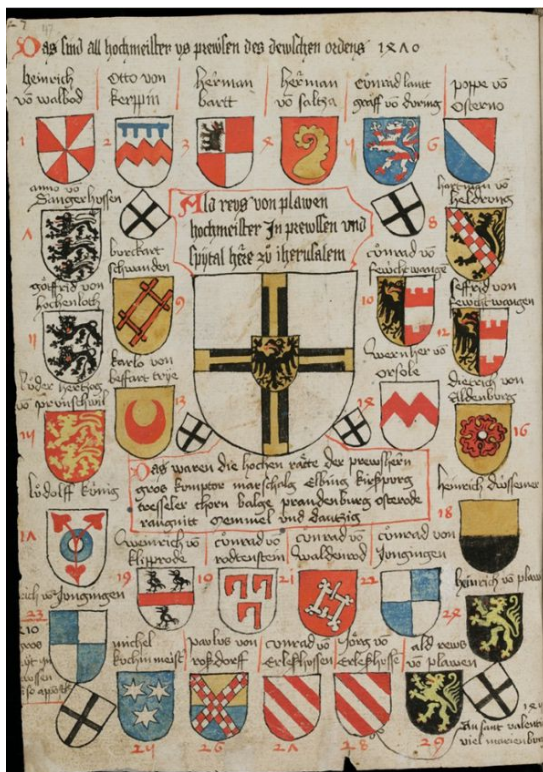 Das sind all hochmeister vs prewssen des dewschen ordens 1δΛ0
heinrich
vō walbod
Otto von
kerppin
herman
bartt
herman
vō saltza
Cūnrad lantt
graff vō during
poppe vō
Osterno
1
2
3
6
anno vō
Sangerhussen
hartman vō
heldrung
Λ
8
Ala reys von plawen
hochmeister In prewssen und
spytal here zū iherusalem
burckart
schwanden
cūnrad vō
fewchtwange
9
10
gotfrid von
hochenloch
seffrid von
fewchtwangen
11
12
karlo von
beffart trije
wernher vō
Orsole
13
lūder hertzog
vō prunschwil
Dietrich von
Aldenburg
16
Das waren die hochen rätte der prewshern
gros komptor marschalg Elbing kirsporg
tresseler thorn balge prandenburg osterode
rangnitt Memmel und dantzig
lūdolff kūnig
heinrich Dussemer
18
wenrich vō
kliprode
cūnrad vō
rodtenstein
cūnrad vō
waldenrod
cūnrad von
Jungingen
19
19
21
22
rich vō Jungingen
23
heinrich vō plaw
michel
kuchinmeist
pawlus von
rosdorff
cunrad vō
Erleshussen
Jörg vō
Erleshusse
ald rews
vō plawen
26
2Λ
28
29
An sant valenti
viel marienburg